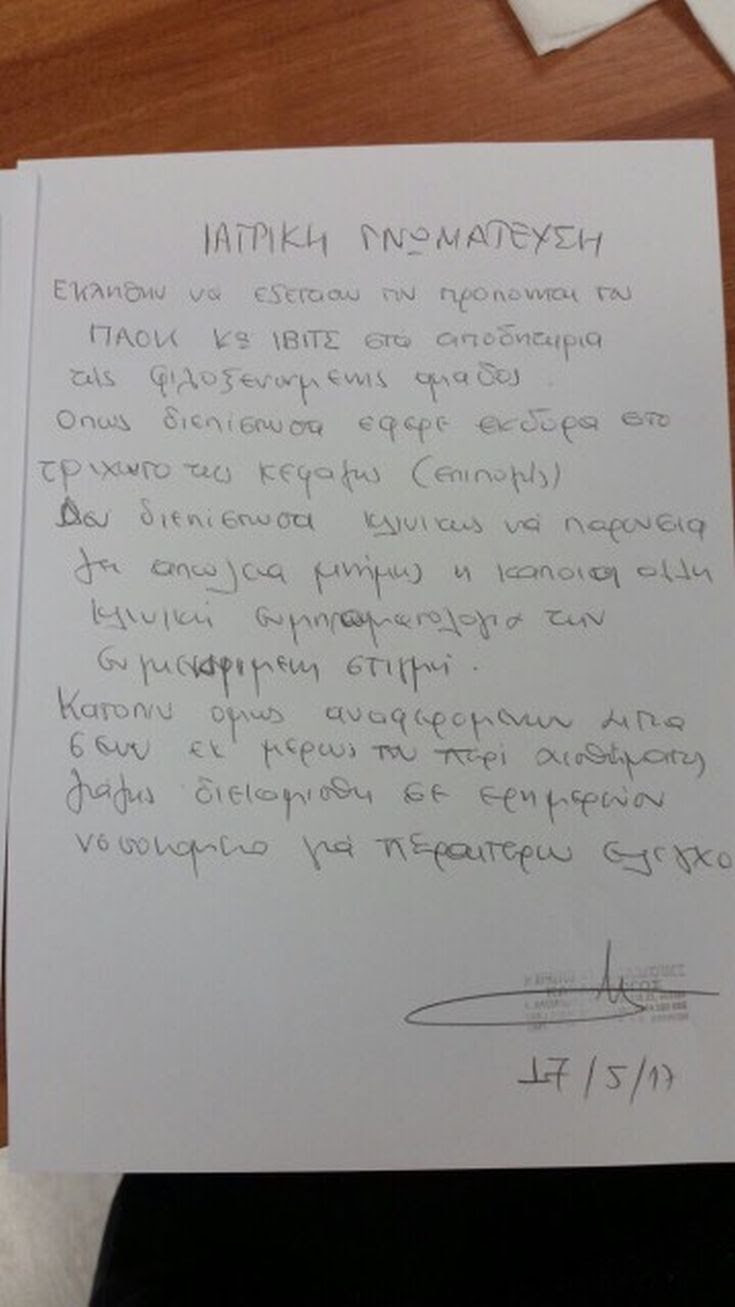 ΙΑΤΡΙΚΗ ΓΝΩΜΑΤΕΥΣΗ
Εκληθην να εξετασω τον προπονητη του
ΠΑΟΚ κο ΙΒΙΤΣ στα αποδητηρια
της φιλοξενουμενης ομαδος.
Οπως διεπιστωσα εφερε εκδορα στο
τριχωτο της κεφαλης (επιπολής)
Δεν διεπιστωσα κλινικως να παρουσια
ζει απωλεια μνήμης η καποια αλλη
κλινική συμπτωματολογια την
συγκεκριμενη στιγμή.
Κατοπιν ομως αναφερομενων
εκ μερους του περι αισθήματος
ζαλης διεκομισθη σε εφημερεύον
νοσοκομειο γιά περαιτερω ελεγχο
17/5/17